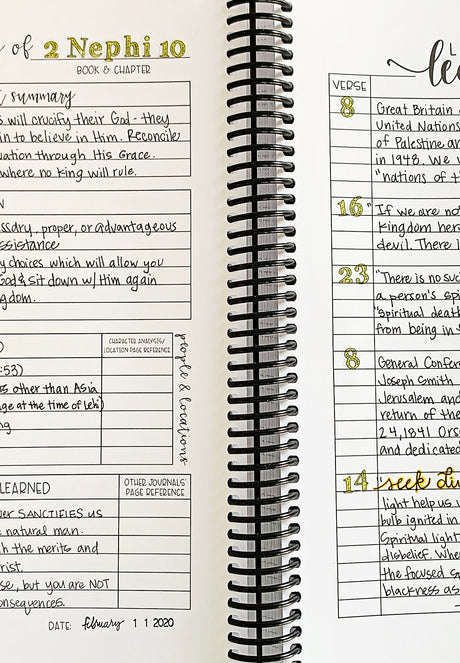 of 2 Nephi 10
BOOK & CHAPTER
summary
s will crucify their God - they
in to believe in Him. Reconcile
uation through His Grace.
where no King will rule.
N
essary, proper, or advantageous
ssistance
y choices which will allow you
God & sit down w/ Him again
gdom.
CHARACTER ANALYSIS/
LOCATION PAGE REFERENCE
:53)
es other than Asia
age at the time of Lehi)
ng
people & locations
LEARNED
OTHER JOURNALS'
PAGE REFERENCE
ver SANCTIFIES US
e natural man.
h the merits and
rist.
se, but you are NOT
onsequences.
DATE: february 11 2020
L
le
VERSE
8 Great Britain
United Nations
of Palestine an
in 1948. We
"nations of t
16 "If we are no
kingdom her
devil. There
23 "There is no suc
a person's spi
"spiritual death
from being in
8 General Confer
Joseph Smith
Jerusalem and
return of the
24, 1841 Ors
and dedicated
14 seek
light help us
bulb ignited in
Spiritual light
disbelief. Whe
the focused s
blackness as